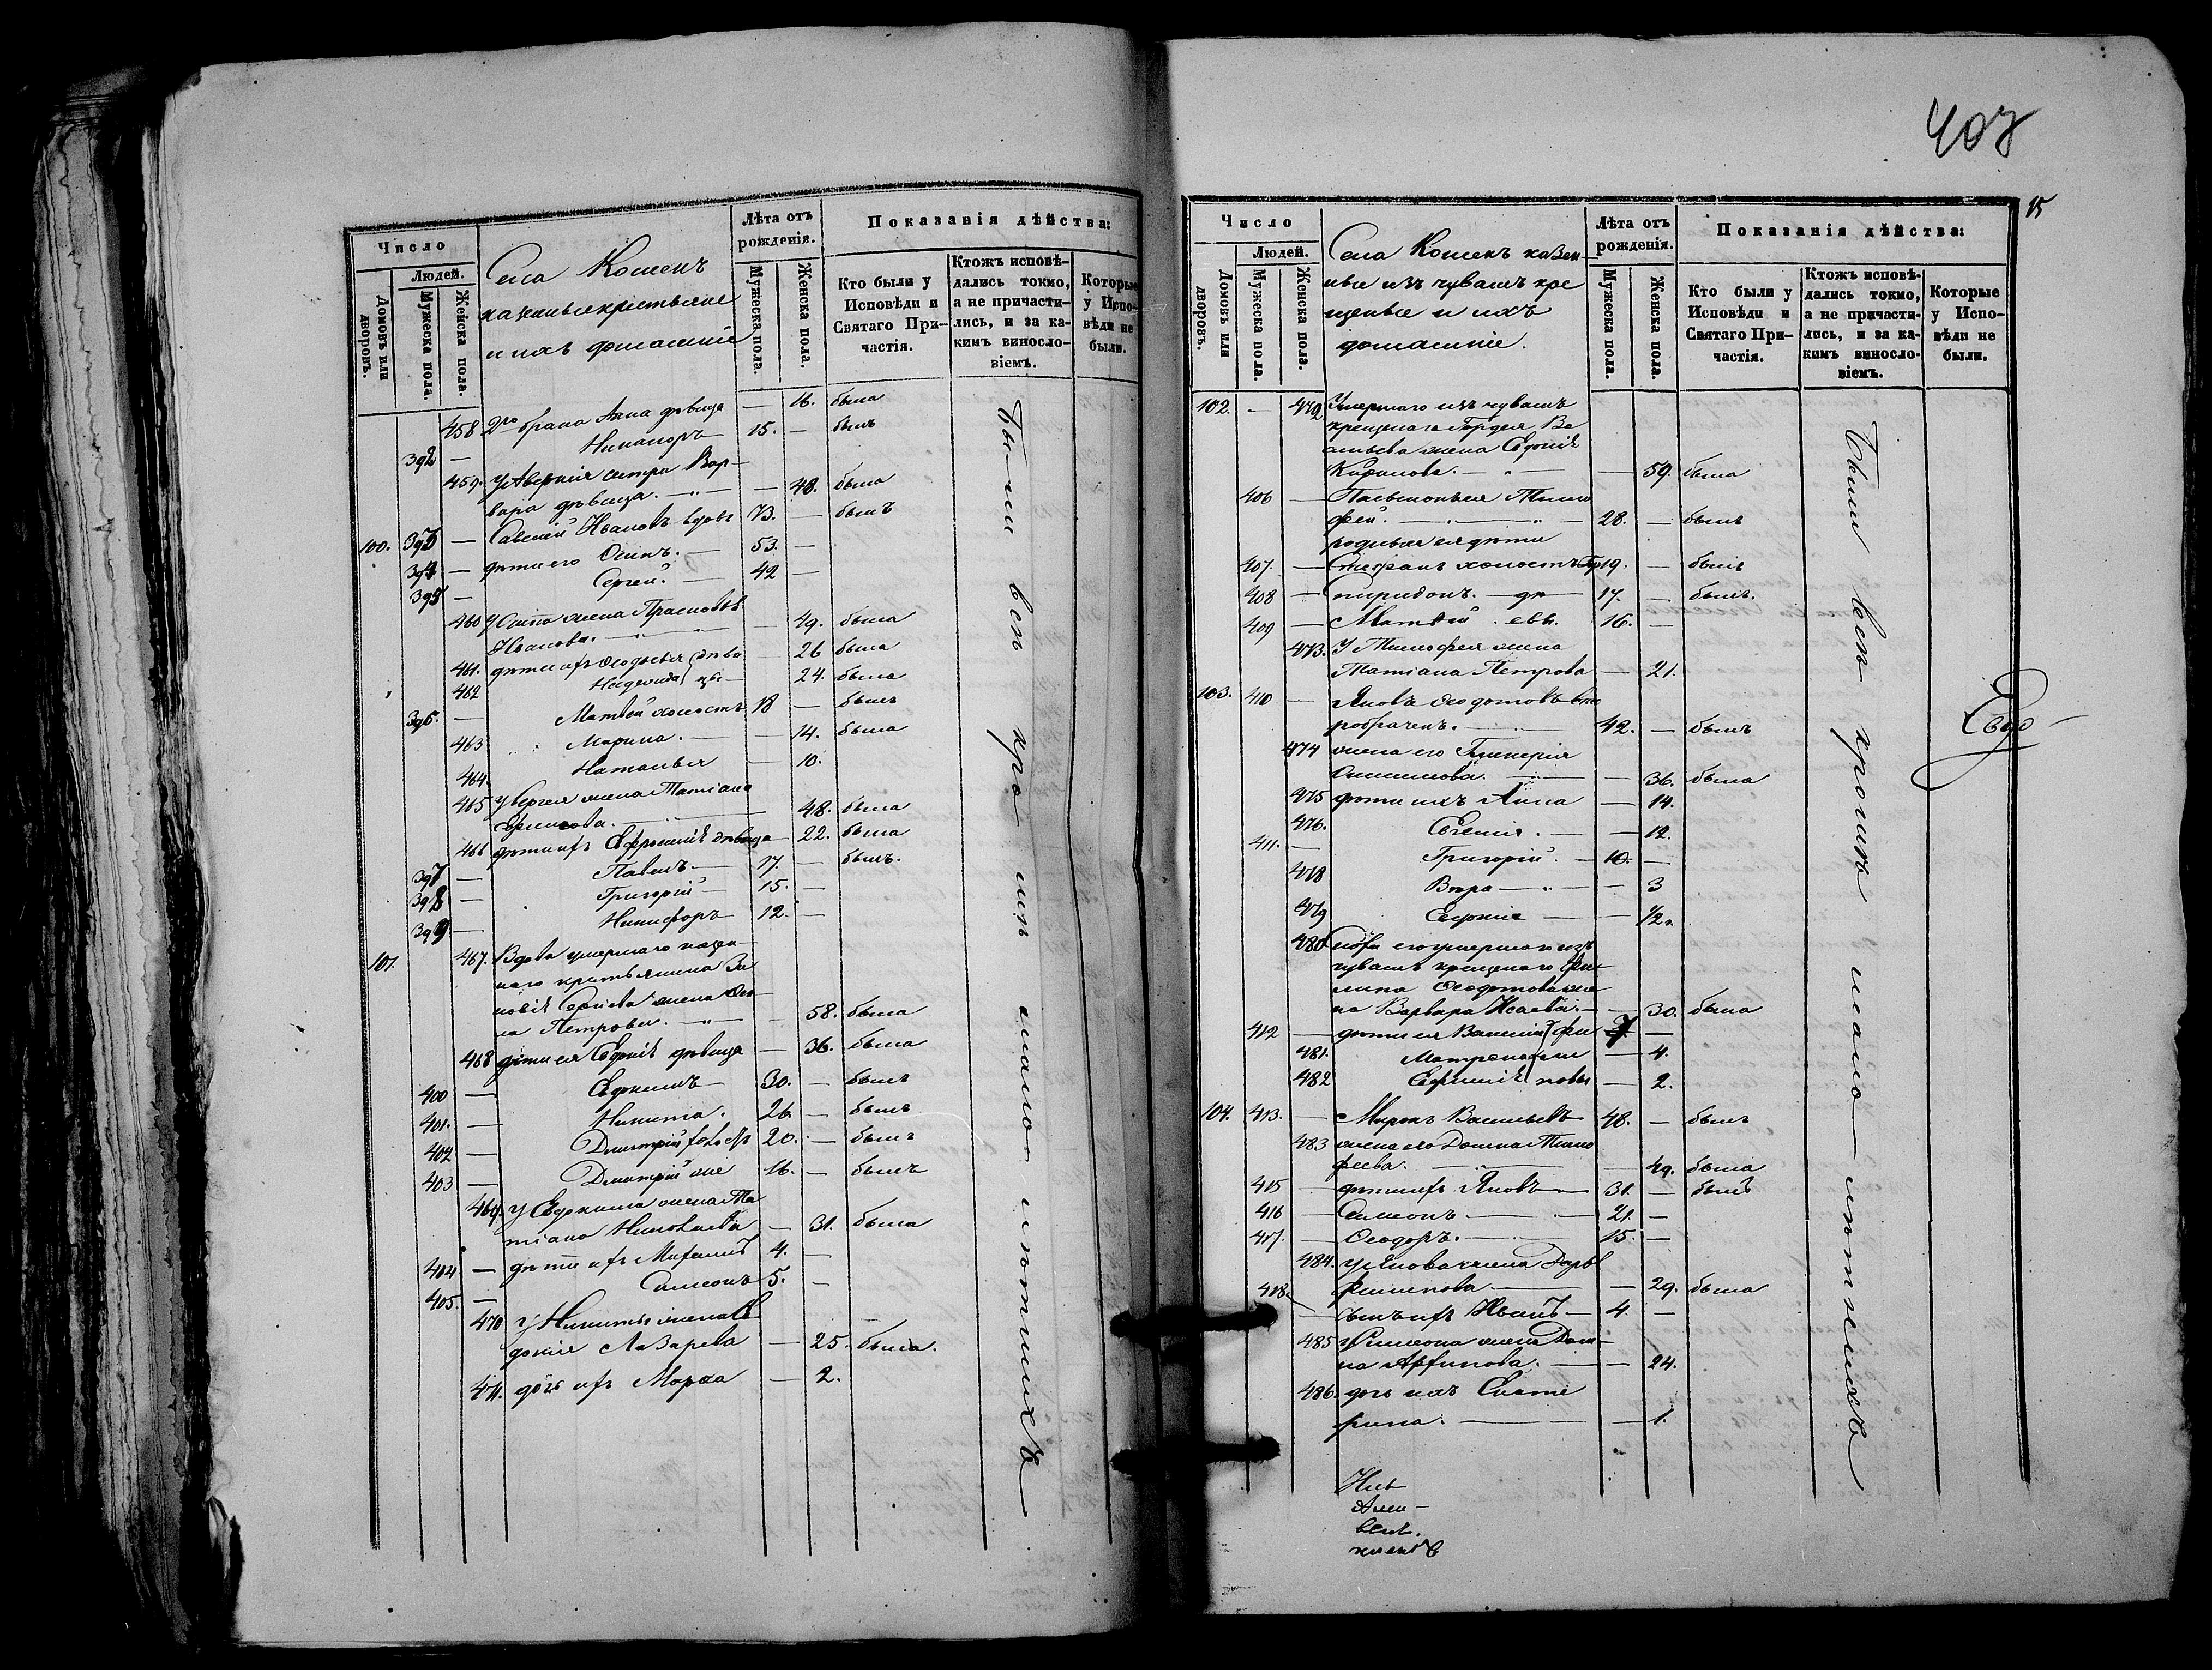 Число
Людей.
Домовъ или дворовъ.
Мужеска пола.
Женска пола.
Села Кошекъ
казенные крестьяне
и ихъ домашніе
Лѣта отъ рожденія.
Мужеска пола.
Женска пола.
Показанія дѣйства:
Кто были у Исповѣди и Святаго Причастія.
Ктожъ исповѣдались токмо, а не причастились, и за какимъ винословіемъ.
Которые у Исповѣди не были.
458 2го брака Анна дѣвица — 16. была
392 — Никаноръ 15. — былъ
459. У Аверкія сестра Вар-
вара дѣвица. — 48. была
100. 393 — Савелій Ивановъ вдовъ 73. — былъ
394 — дѣти его Осипъ. — 53. —
395 — Сергей. — 42 —
460 У Осипа жена Прасковья
Иванова. — 49. была
461. дѣти ихъ Ѳедосья дѣви — 26 была
462 Надежда цы — 24. была
396. — Матвей холостъ 18 — былъ
463 Марина. — 14. была
464. Наталья — 10.
465 У Сергея жена Татіана
Ефимова. — 48. была
466 дѣти ихъ Ефросинія дѣвица — 22. была
397 — Павелъ — 17. — былъ.
398 — Григорій — 15. —
399 — Никифоръ 12. —
101. 467. Вдова умершаго казен-
наго крестьянина Зи
новія Сергіева жена
на Петрова. — 58. была
468 дѣти ея Евдокія дѣвица — 36. была
400 — Евдокимъ 30. — былъ
401. — Никита. 26 — былъ
402 — Дмитрій холостъ 20. — былъ
403 — Дмитрій же 16. — былъ
469. У Евдокима жена Та
тіана Николаева — 31. была
404 — дѣти ихъ Михаилъ 4. —
405. — Симеонъ 5. —
470 У Никиты жена Ев
докія Лазарева — 25. была.
471. дочь ихъ Марѳа — 2.
Были всѣ кромѣ мало-лѣтнихъ
407
15
Число
Людей.
Домовъ или дворовъ.
Мужеска пола.
Женска пола.
Села Кошекъ казен-
ные изъ чувашъ кре
щеные и ихъ
домашніе.
Лѣта отъ рожденія.
Мужеска пола.
Женска пола.
Показанія дѣйства:
Кто были у Исповѣди и Святаго Причастія.
Ктожъ исповѣдались токмо, а не причастились, и за какимъ винословіемъ.
Которые у Исповѣди не были.
102. - 472 Умершаго изъ чувашъ
крещенаго Гордея Ва
сильева жена Евдокія
Кирилова. — 59. была
406 — Пасынокъ ея Тимо
фей. — 28. — былъ
родные ея дѣти
407. — Стефанъ холостъ 19. — былъ
408 — Спиридонъ. 17. — былъ.
409 — Матвѣй 16. —
473. У Тимофея жена
Татіана Петрова — 21.
103. 410 — Яковъ Ѳеодотовъ вто
робраченъ. — 42. — былъ
474 жена его Гликерія
— 36. была
475 дѣти ихъ Анна — 14.
476. Евгенія. — 12.
411. — Григорій. — 10. —
478 Вѣра — 3
479 Евдокія — 1/2.
480 сноха его умершаго изъ
чувашъ крещенаго Фи-
липа Ѳеодотова же
на Варвара Исаева. — 30. была
412 — дѣти ея Василій Фи 7 —
481. Матрона ли — 4.
482 Евфимія повы — 2.
104. 413. — Миронъ Васильевъ 48. — былъ
483 жена его Домна Тимо
феева. — 49. была
415 — дѣти ихъ Яковъ — 31. — былъ
416 — Симеонъ — 21. —
417. — Ѳеодоръ. — 15. —
484. У Якова жена Дарья
Филипова — 29. была
418. — сынъ ихъ Иванъ — 4. —
485 У Симеона жена Дом-
на Архипова. — 24.
486. дочь ихъ Екате
рина. — 1.
Были всѣ кромѣ мало-лѣтнихъ